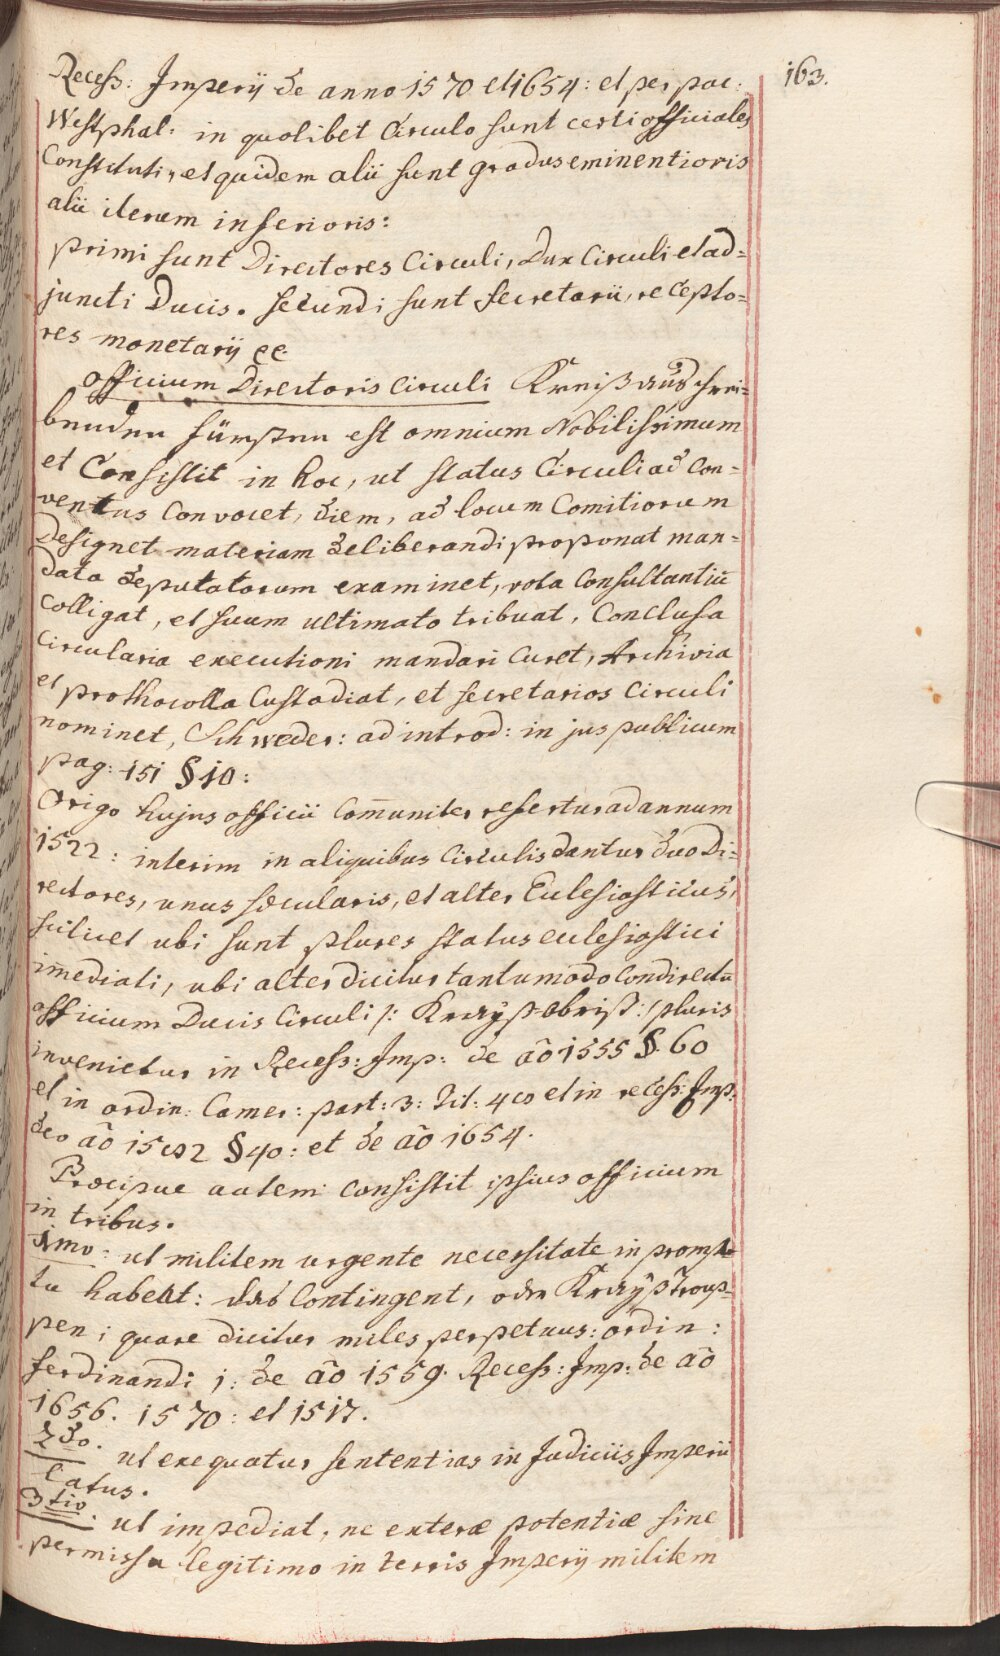 163.
Recess: Imperij de anno 1570 et 1654: et per pac:
Westphal: in quolibet Circulo sunt certi officiales
Constituti, et quidem alii sunt gradus eminentioris
alii iterum inferioris:
primi sunt Directores Circuli, Dux Circuli et ad=
juncti Ducis. secundi sunt secretarii, recepto=
res monetarij &c.
officium Directoris circuli Kreiß auschrei=
benden Fürsten est omnium Nobilissimum
et Consistit in hoc, ut status Circuli ad Con=
ventus Convocet, diem, ad locum Comitiorum
designet materiam deliberandi proponat man=
data deputatorum examinet, vota Consultantiū
Colligat, et suum ultimato tribuat, Conclusa
Circularia executioni mandari Curet, Archivia
et prothocolla Custodiat, et secretarios Circuli
nominet, Schweder: ad introd: in jus publicum
pag: 151 §10:
Origo hujus officii Com̄uniter refertur ad annum
1522: interim in aliquibus Circulis dantur duo Di=
rectores, unus sæcularis, et alter Ecclesiasticus,
scilicet ubi sunt plures status ecclesiastici
im̄ediati, ubi alter dicitur tantumodo Condirectū
officium Ducis Circuli /: Krayß obrist :/ pluris
invenietur in Recess: Imp: de aō 1555 §. 60
et in ordin: Camer: part: 3: Tit: et in recess: Imp:
deo aō §40: et de aō 1654.
Præcipue autem consistit ipsius officium
in tribus.
1mo: ut militem urgente necessitate in promp
tu habeat: das Contingent, oder Krayß troup=
pen; quare dicitur miles perpetuus: ordin:
ferdinandi 1: de aō 1559. Recess: Imp: de aō
1656. 1570: et 1517.
2do. ut exequatur sententias in Judiciis Imperii
latus.
3tio. ut impediat, ne exteræ potentiæ sine
permissu legitimo in terris Imperij militem